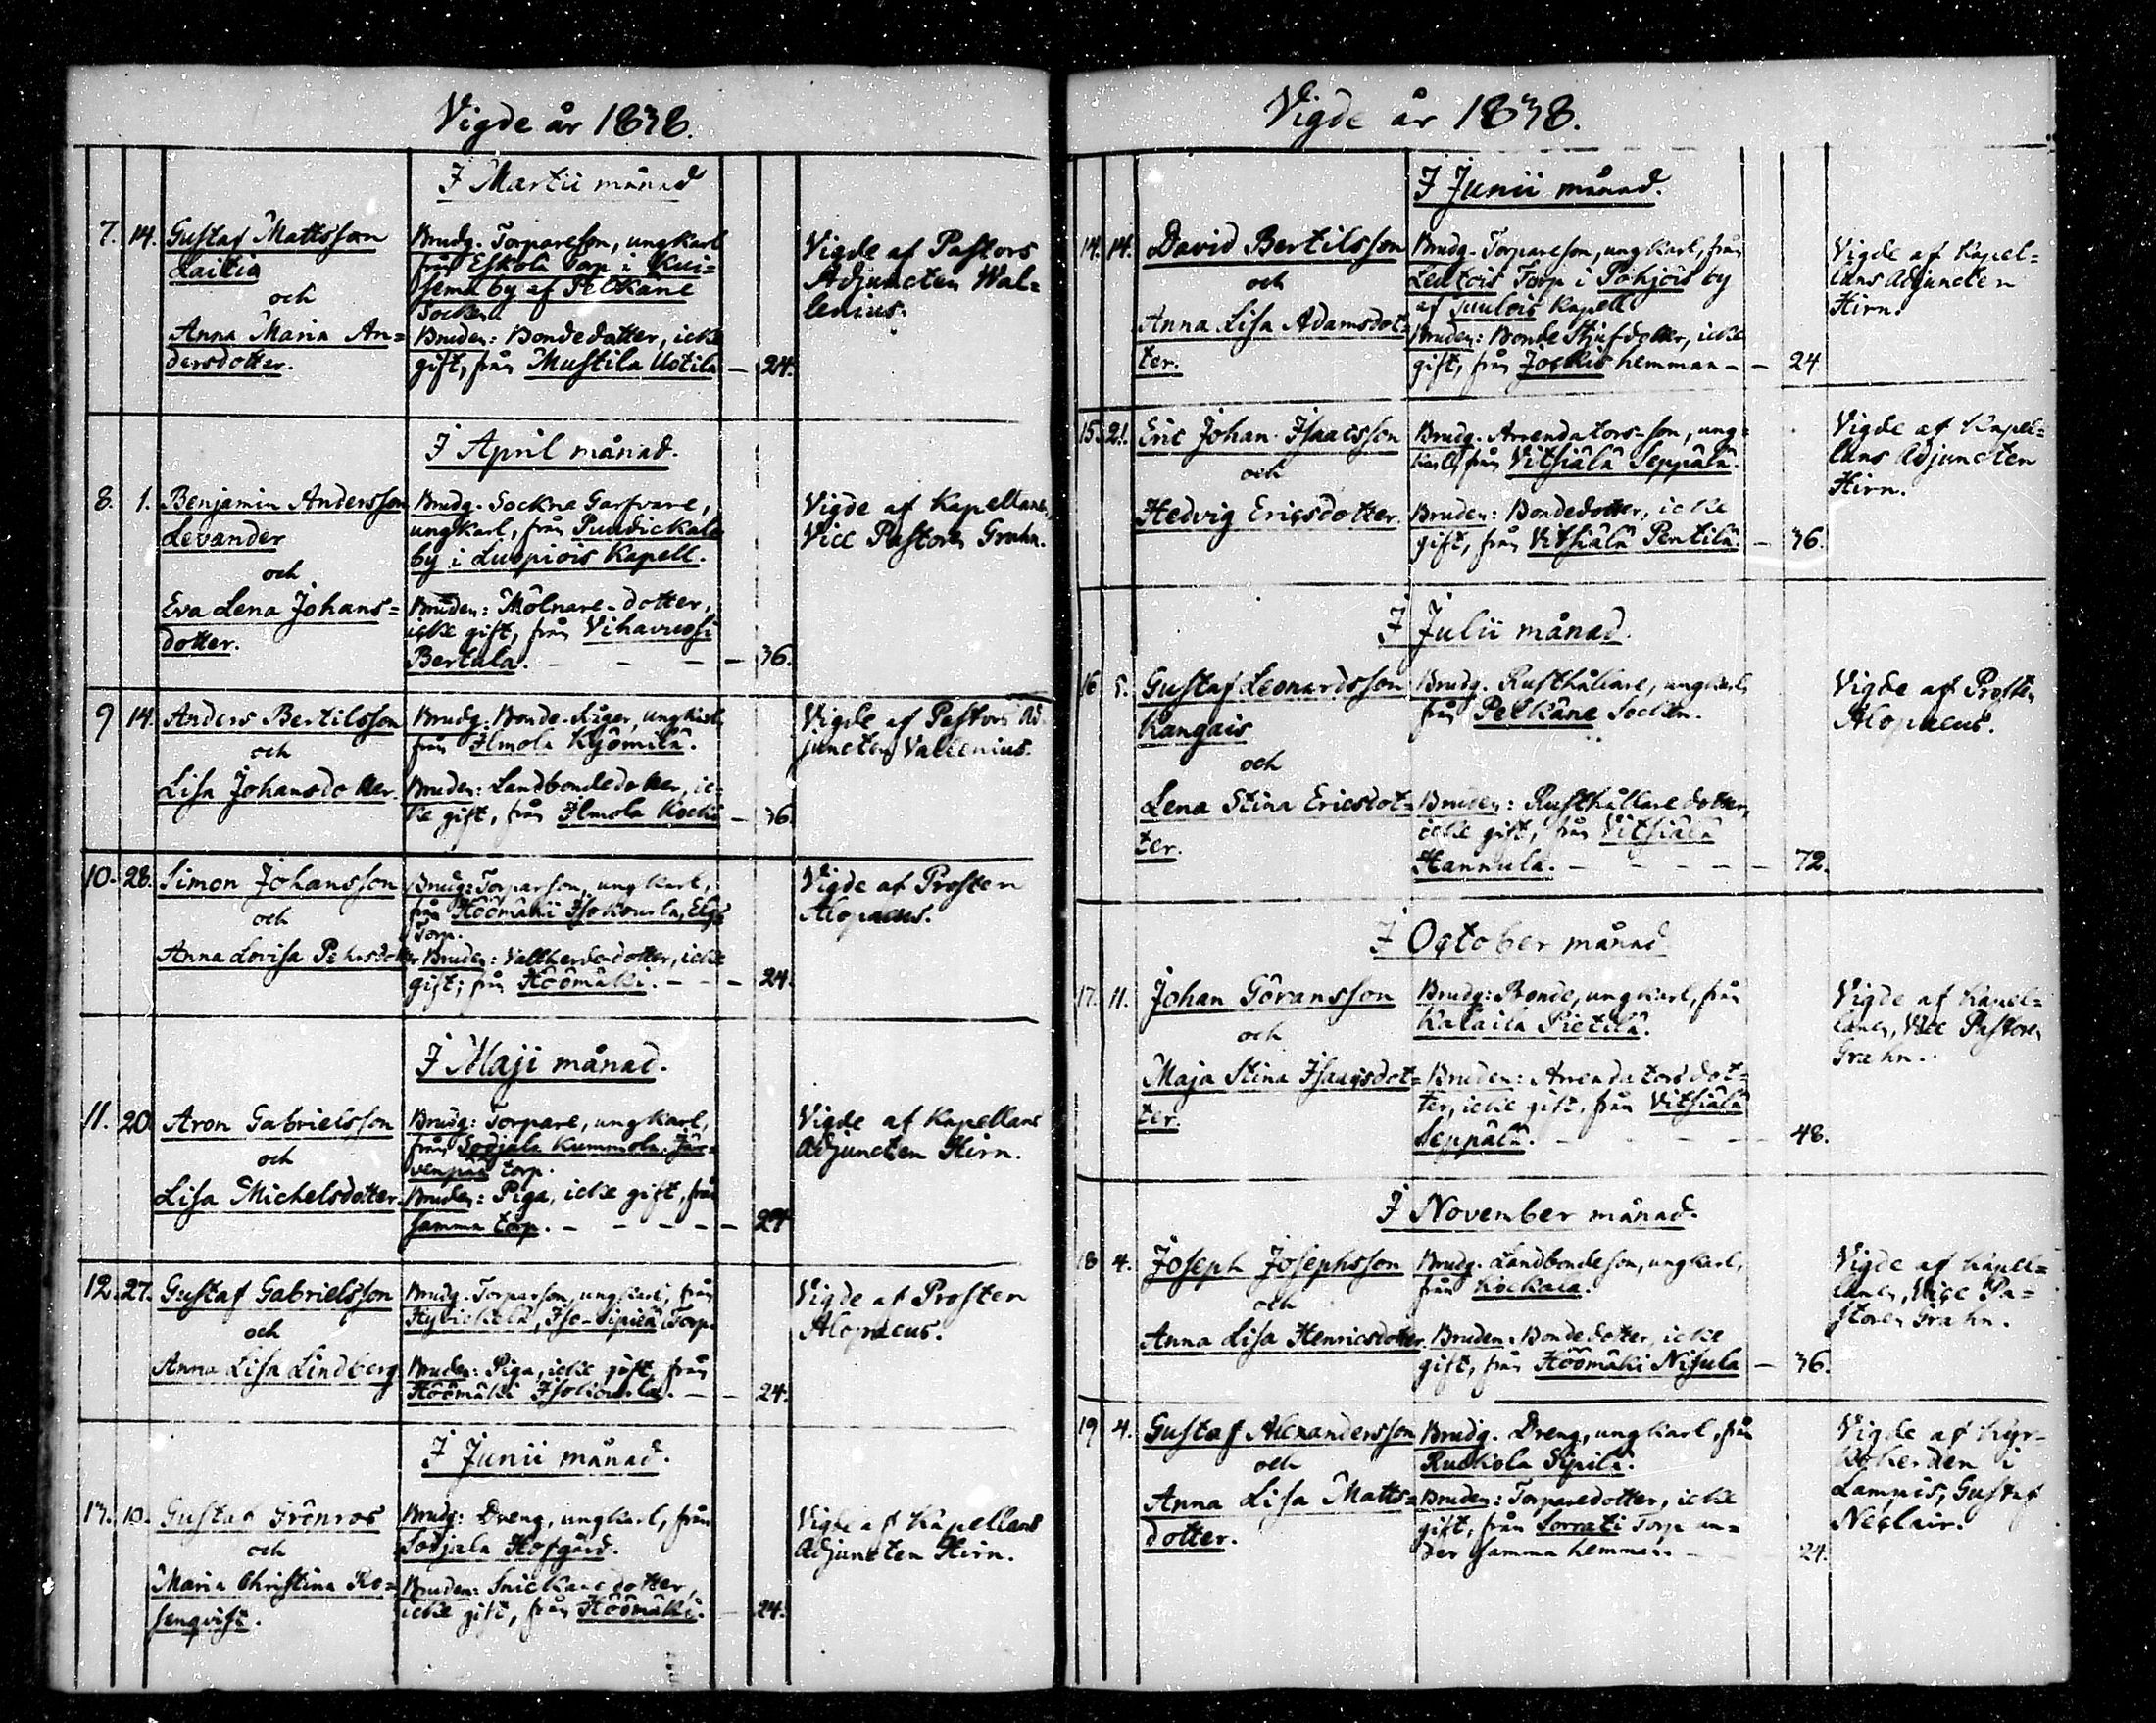 Vigde år 1838.
I Martii månad
7. 14. Gustaf Mattsson
Laitia
och
Anna Maria An=
dersdotter.
Brudg. Torpareson, ungkarl
från Eskola Torp i Kui=
sema by af Pelkäne
Socken.
Bruden: Bondedotter, icke
gift, från Mustila Uotila — 24.
Vigde af Pastors
Adjuncten Wal=
lenius.
I April månad.
8. 1. Benjamin Andersson
Levander
och
Eva Lena Johans=
dotter.
Brudg. Sockne Garfvare,
ungkarl, från
by i Luopiois Kapell.
Bruden: Mölnare-dotter,
icke gift, från Vihavuosi
Bertula. — — — — 36.
Vigde af Kapellanen,
Vice Pastoren Grahn.
9 14. Anders Bertilsson
och
Lisa Johansdotter.
Brudg. Bonde-Måger, ungkarl,
från Ilmola Kyömilä.
Bruden: Landbondedotter, ic=
ke gift, från Ilmola Kocki — 36.
Vigde af Pastors Ad=
juncten Vallenius.
10. 28. Simon Johansson
och
Anna Lovisa Pehrsdotter
Brudg: Torparson, ungkarl,
från Höömäki Isokourla,
Torp.
Bruden: Vallherdedotter, icke
gift, från Höömäki. — — — 24.
Vigde af Prosten
Alopaeus.
I Maji månad.
11. 20. Aron Gabrielsson
och
Lisa Michelsdotter.
Brudg: Torpare, ungkarl,
från Sodjala Kummola, Jär=
venpää torp.
Bruden: Piga, icke gift, från
samma torp. — — — — — 24
Vigde af Kapellans
Adjuncten Hirn.
12. 27. Gustaf Gabrielsson
och
Anna Lisa Lindberg
Brudg. Torparson, ungkarl, från
Hyvickälä, Iso-Sipilä Torp.
Bruden: Piga, icke gift, från
Höömäki Isokourla. — — 24.
Vigde af Prosten
Alopaeus.
I Junii månad.
13. 10. Gustaf Grönros
och
Maria Christina Ro=
senqvist.
Brudg: Dreng, ungkarl, från
Sodjala Hofgård.
Bruden: Snickaredotter,
icke gift, från Höömäki. — 24.
Vigde af Kapellans
Adjuncten Hirn.
Vigde år 1838.
I Junii månad.
14. 14. David Bertilsson
och
Anna Lisa Adamsdot=
ter.
Brudg. Torpareson, ungkarl, från
Leutois Torp i Pohjois by
af Tuulois Kapell
Bruden: Bonde Stjufdotter, icke
gift, från Jockis hemman — — 24.
Vigde af Kapel=
lans Adjuncten
Hirn.
15. 21. Eric Johan Isaacsson
och
Hedvig Ericsdotter.
Brudg. Arrendators-son, ung=
karl, från Vitsiälä Seppälä.
Bruden: Bondedotter, icke
gift, från Vitsiälä Pentilä. — 36.
Vigde af Kapel=
lans Adjuncten
Hirn.
I Julii månad.
16 5. Gustaf Leonardsson
Kangais
och
Lena Stina Ericsdot=
ter.
Brudg. Rusthållare, ungkarl,
från Pelkäne Socken.
Bruden: Rusthållare dotter,
icke gift, från Vitsiälä
Hannula. — — — — — 72.
Vigde af Prosten
Alopaeus.
I October månad
17. 11. Johan Göransson
och
Maja Stina Isaacsdot=
ter.
Brudg: Bonde, ungkarl, från
Kalaila Pietilä.
Bruden: Arrendators dot=
ter, icke gift, från Vitsiälä
Seppälä. — — — — — 48.
Vigde af Kapel=
lanen, Vice Pastoren
Grahn.
I November månad.
18 4. Joseph Josephsson
och
Anna Lisa Henricsdotter.
Brudg. Landbondeson, ungkarl,
från Kockala.
Bruden: Bondedotter, icke
gift, från Höömäki Nisula — 36.
Vigde af Kapel=
lanen, Vice Pa=
storen Grahn.
19 4. Gustaf Alexandersson
och
Anna Lisa Matts=
dotter.
Brudg. Dreng, ungkarl, från
Ruokola Sipilä.
Bruden: Torparedotter, icke
gift, från Sorrati Torp un=
der samma hemman. — 24.
Vigde af Kyr=
koherden i
Lampis, Gustaf
Neclair.